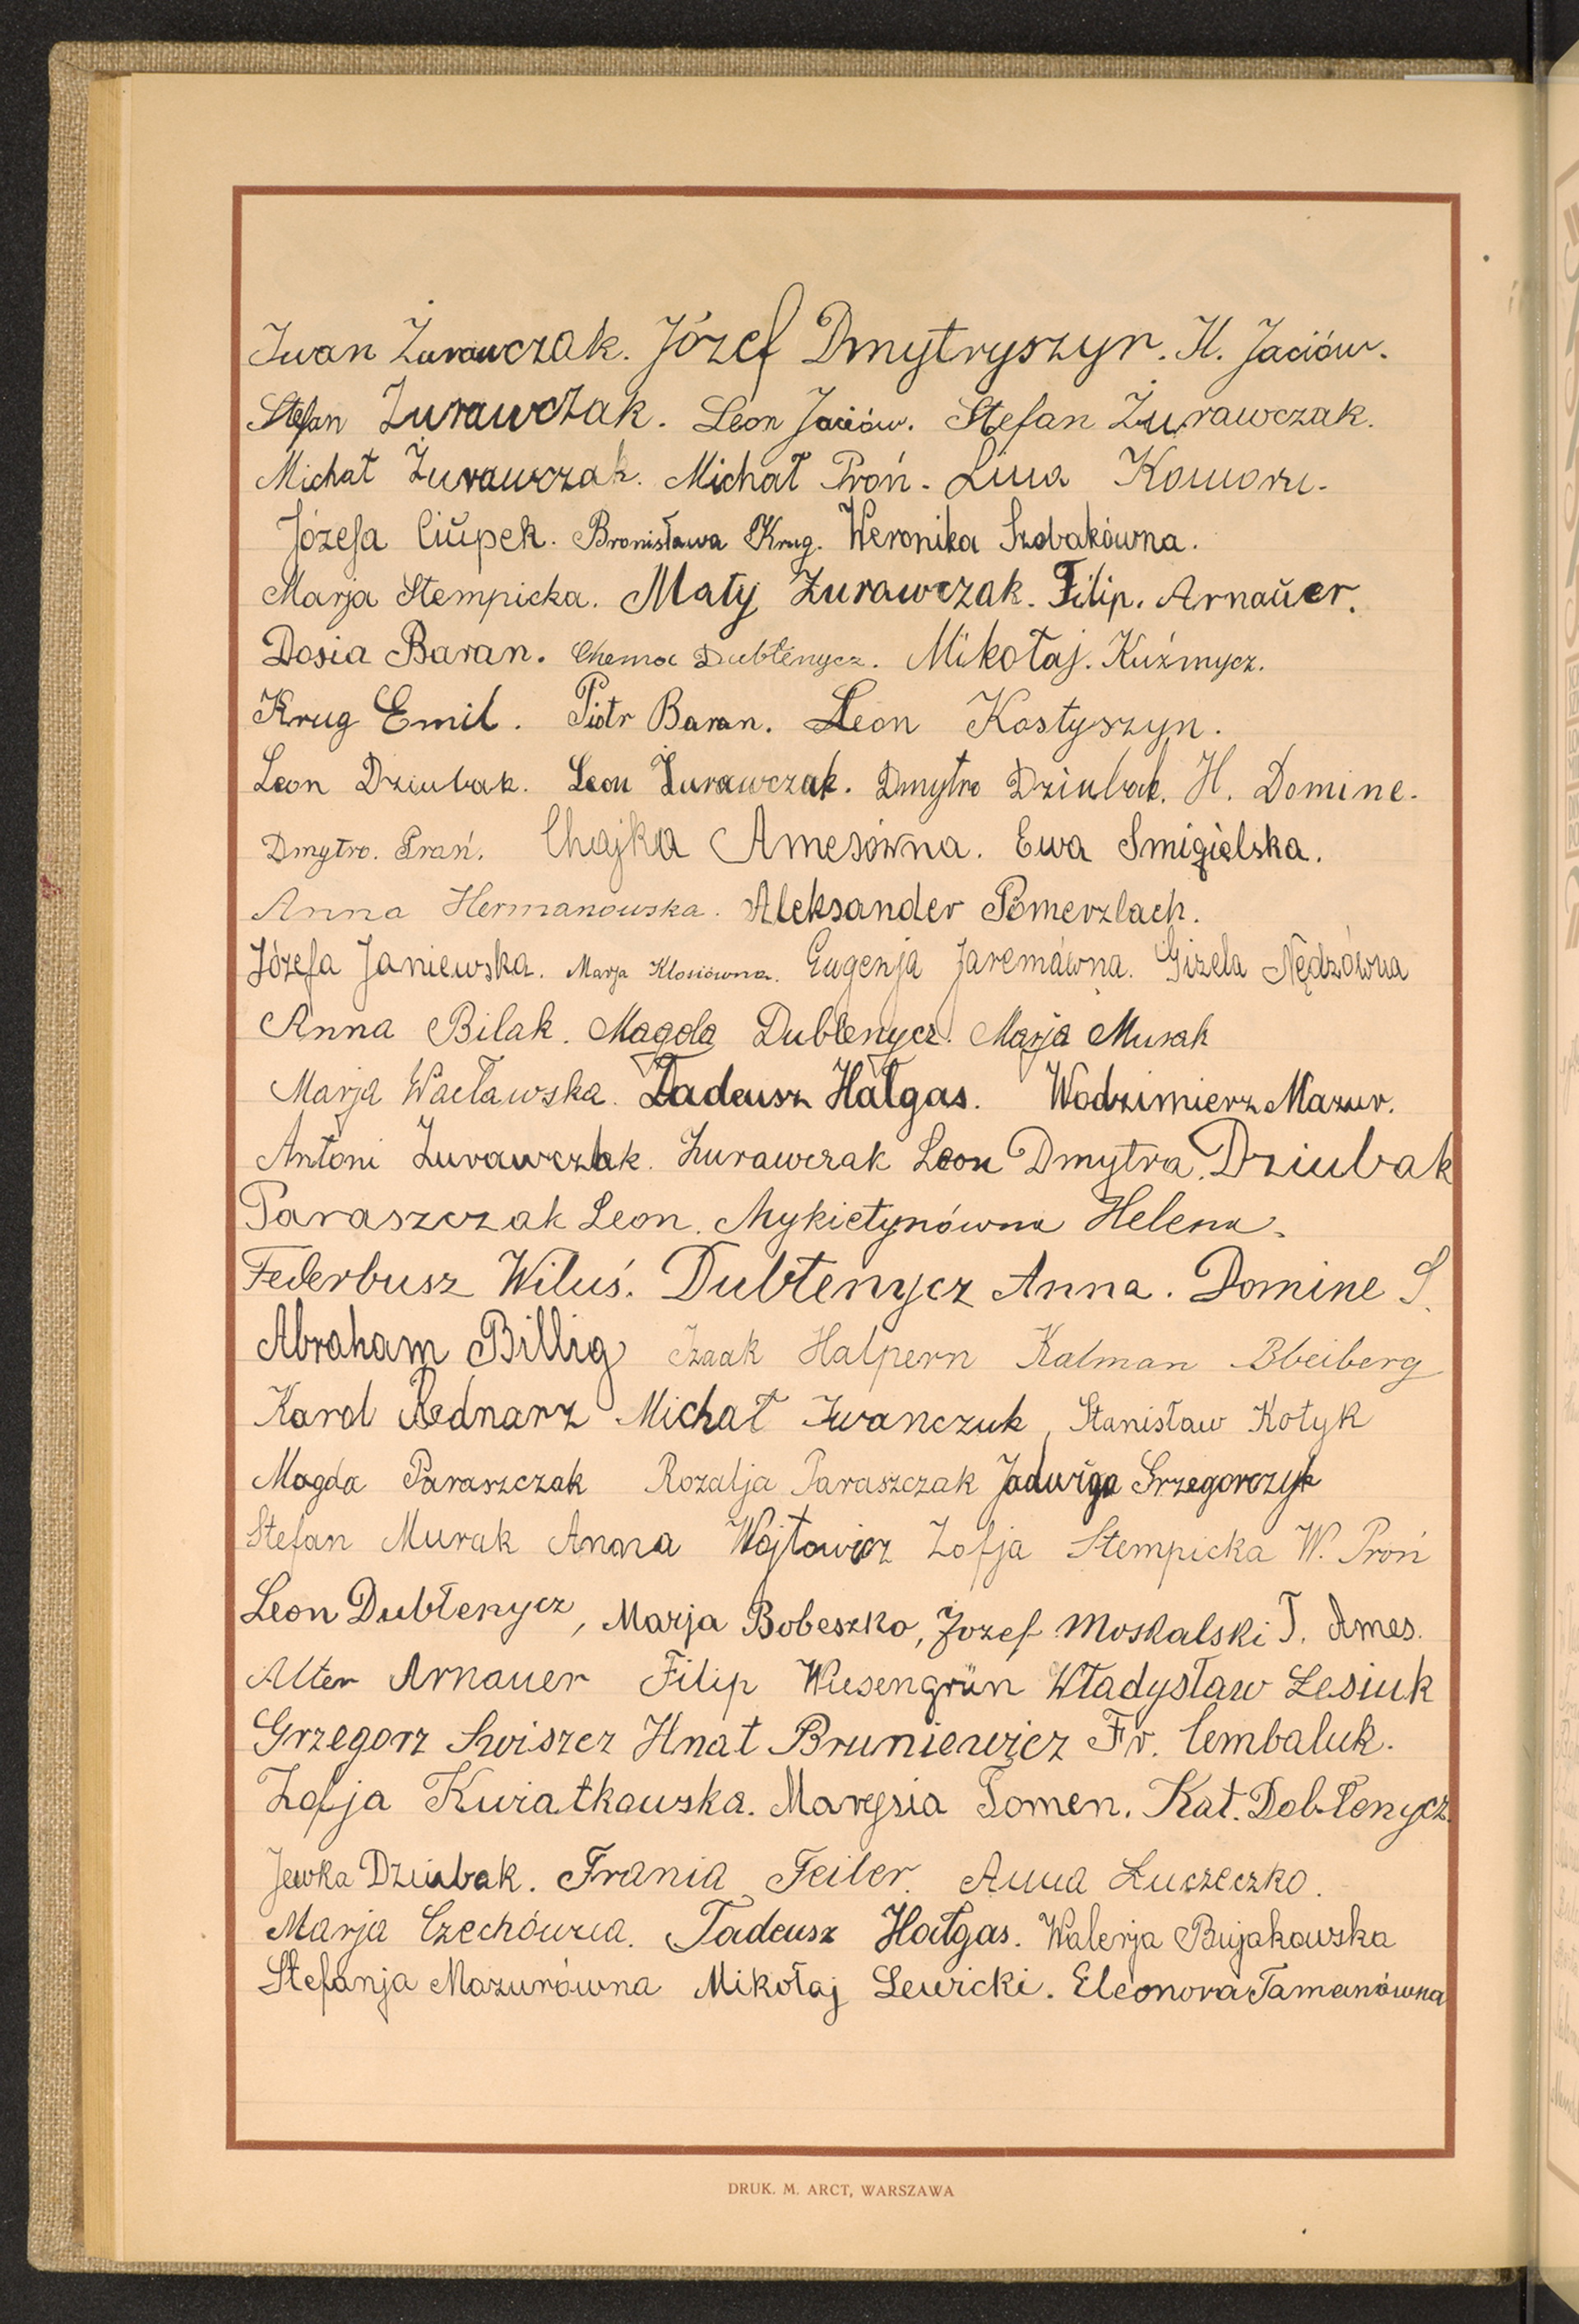 Iwan Żurawczak. Józef Dmytryszyn. H. Jaciów.
Stefan Żurawczak. Leon Jaciów. Stefan Żurawczak.
Michał Żurawczak. Michał Proń.
Józefa Ciŭpek. Bronisława Krug. Weronika Szobakówna.
Marja Stempicka. Mały Żurawczak. Filip. Arnaŭer.
Dosia Baran. Dubłenycz. Mikołaj. Kuźmycz.
Krug Emil. Piotr Baran. Leon Kostyszyn.
Leon Dziubak. Leon Żurawczak. Dmytro Dziubak. H. Domine.
Dmytro. Prań. Chajka Amesówna. Ewa Smigielska.
Anna Hermanowska. Aleksander Pomerzlach.
Józefa Janiewska. Marja Klosiówna. Eugenja Jaremówna. Gizela Nędzówna
Anna Bilak. Magda Dubłenycz. Marja Murak
Marja Wacławska. Tadeusz Hałgas. Wodzimierz Mazur.
Antoni Żurawczak. Żurawczak Leon Dmytra. Dziubak
Paraszczak Leon. Mykietynówna Helena.
Federbusz Wiluś. Dubłenycz Anna. Domine S.
Abraham Billig Izaak Halpern Kalman Bleiberg
Karol Bednarz Michał Iwanczuk, Stanisław Kotyk
Magda Paraszczak Rozalja Paraszczak Jadwiga Grzegorczyk
Stefan Murak Anna Wojtowicz Zofja Stempicka W. Proń
Leon Dubłenycz, Marja Bobeszko, Jozef Moskalski T. Ames.
Alter Arnauer Filip Wiesengrün Władysław Lesiuk
Grzegorz Swiszcz Hnat Bruniewicz Fr. Cembaluk.
Zofja Kwiatkowska. Marysia Tomen. Kat. Dobłenycz.
Jewka Dziubak. Frania Feiler. Anna Łuczeczko.
Marja Czechówna. Tadeusz Hałgas. Walerja Bujakowska
Stefanja Mazurówna Mikołaj Lewicki. Eleonora Tamanówna
DRUK. M. ARCT, WARSZAWA